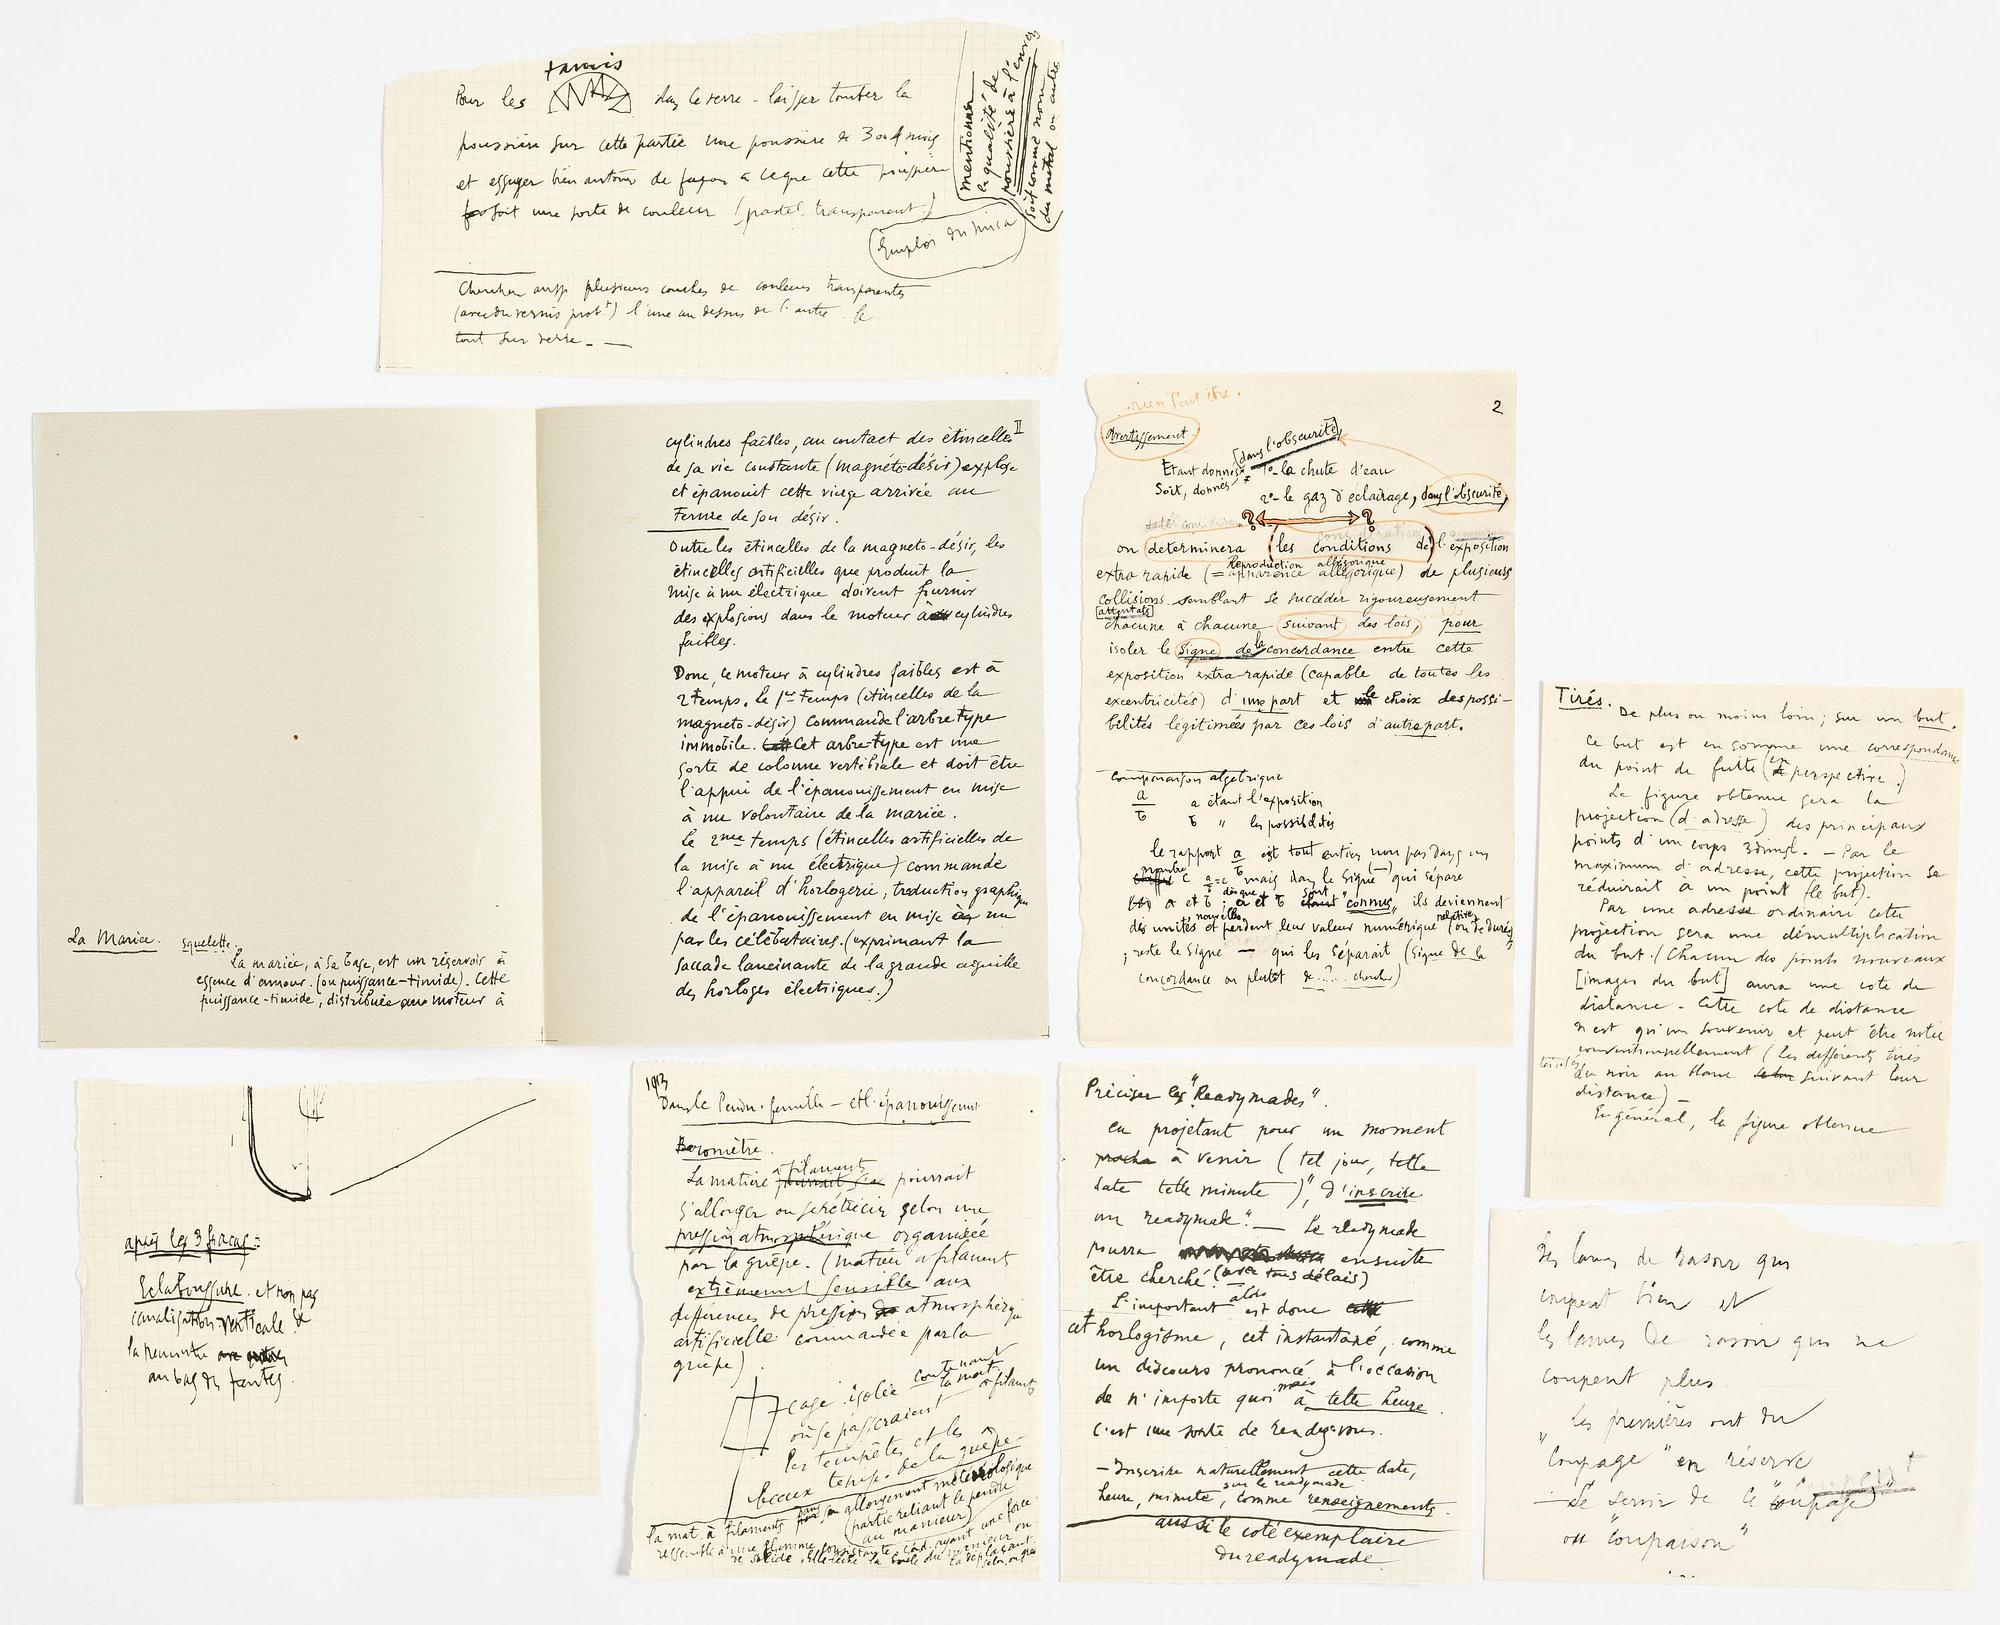 tamis
Pour les dans le verre - laisser tomber la
poussière sur cette partie une poussière de 3 ou 4 mois
et essuyer bien autour de façon à ce que cette poussière
soit une sorte de couleur (pastel transparent)
Emploi du mica
mentionner
la qualité de
poussière à l'envers
soit comme nom
du métal ou autre
Chercher aussi plusieurs couches de couleurs transparentes
(avec du vernis prob.t) l'une au dessus de l'autre. le
tout sur verre. —
La Mariée. squelette.
La mariée, à sa base, est un réservoir à
essence d'amour. (ou puissance-timide). Cette
puissance-timide, distribuée au moteur à
II
cylindres faibles, au contact des étincelles
de sa vie constante (magnéto-désir) explose
et épanouit cette vierge arrivée au
terme de son désir.
Outre les étincelles de la magneto-désir, les
étincelles artificielles que produit la
mise à nu électrique doivent fournir
des explosions dans le moteur à cylindres
faibles.
Donc, ce moteur à cylindres faibles est à
2 temps. Le 1er temps (étincelles de la
magneto-désir) commande l'arbre type
immobile. Cet arbre-type est une
sorte de colonne vertébrale et doit être
l'appui de l'épanouissement en mise
à nu volontaire de la mariée.
le 2me temps (étincelles artificielles de
la mise à nu électrique) commande
l'appareil d'horlogerie, traduction graphique
de l'épanouissement en mise à nu
par les célébataires. (exprimant la
saccade lancinante de la grande aiguille
des horloges électriques.)
rien Peut être.
2
Avertissement.
[dans l'obscurité]
Etant donnés 1º_ la chute d'eau
Soit, donnés
2º_ le gaz d'eclairage, dans l'obscurité,
? ?
on determinera (les conditions de) l'exposition
Reproduction allégorique
extra rapide (= apparence allégorique) de plusieurs
collisions semblant se succéder rigoureusement
[attentats]
chacune à chacune suivant des lois, pour
isoler le Signe de la concordance entre cette
exposition extra-rapide (capable de toutes les
excentricités) d'une part et le choix des possi-
bilités légitimées par ces lois d'autre part.
Comparaison algébrique
a a étant l'exposition
b b " les possibilités
le rapport a/b est tout entier non pas dans un
nombre c a/b = c mais dans le signe (—) qui sépare
a et b ; dès que a et b sont "connus", ils deviennent
des unités nouvelles et perdent leur valeur numérique relative (ou de durée)
; reste le signe — qui les séparait (signe de la
concordance ou plutôt de...?... chercher)
Tirés.
De plus ou moins loin; sur un but.
Ce but est en somme une correspondance
du point de fuite (en perspective.)
La figure obtenue sera la
projection (d'adresse) des principaux
points d'un corps 3dimsl. — Par le
maximum d'adresse, cette projection se
réduirait à un point (le but).
Par une adresse ordinaire cette
projection sera une démultiplication
du but. (Chacun des points nouveaux
[images du but] aura une cote de
distance. Cette cote de distance
n'est qu'un souvenir et peut être notée
conventionnellement (les différents tirés
teintés du noir au blanc suivant leur
distance) —
En général, la figure obtenue
après les 3 fracas =
Eclaboussure. et non pas
canalisation verticale de
la rencontre
au bas des pentes.
1913
Dans le Pendu femelle — et l'épanouissement
Baromètre.
La matière à filaments pourrait
s'allonger ou se rétrécir selon une
pression atmosphérique organisée
par la guêpe. (matière à filaments
extrêmement sensible aux
différences de pression atmosphérique
artificielle commandée par la
guêpe).
cage isolée contenant la mat. à filaments
où se passeraient
les tempêtes et les
beaux temps. de la guêpe-
la mat. à filaments dans son allongement météorologique
(partie reliant le pendu
au manieur)
ressemble à une flamme consistante, càd. ayant une force
Préciser les "Readymades".
en projetant pour un moment
à venir (tel jour, telle
date telle minute)", d'inscrire
un readymade". — Le readymade
pourra ensuite
être cherché. (avec tous délais)
L'important alors est donc
cet horlogisme, cet instantané, comme
un discours prononcé à l'occasion
de n'importe quoi mais à telle heure.
C'est une sorte de rendez-vous.
— Inscrire naturellement cette date,
heure, minute, sur le readymade comme renseignements.
aussi le coté exemplaire
du readymade.
Des lames de rasoir qui
coupent bien et
les lames de rasoir qui ne
coupent plus.
Les premières ont du
"coupage" en réserve
— Se servir de ce "coupage"
ou "coupaison"